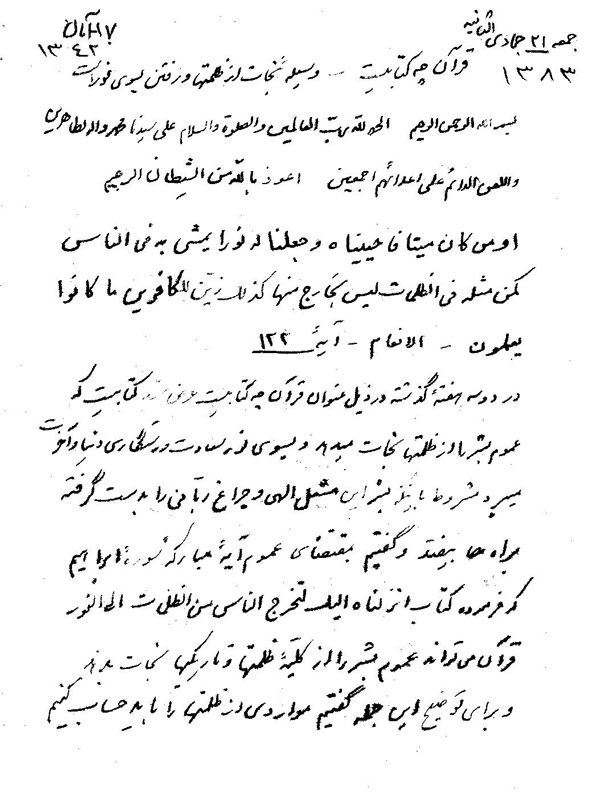 جمعه ۲۱ جمادی الثانیه ۱۳۸۳
۱۷ آبان ۱۳۴۲
قرآن چه کتابیست - وسیلهٔ نجات از ظلمتها و رفتن بسوی نور است
بسم الله الرحمن الرحیم الحمد لله رب العالمین والصلوة والسلام علی سیدنا محمد واله الطاهرین
واللعن الدائم علی اعدائهم اجمعین اعوذ بالله من الشیطان الرجیم
او من کان میتا فاحییناه وجعلنا له نورا یمشی به فی الناس
کمن مثله فی الظلمات لیس بخارج منها کذلک زین للکافرین ما کانوا
یعملون - الانعام - آیهٔ ۱۲۲
در دو سه هفتهٔ گذشته در ذیل عنوان قرآن چه کتابیست عرض شد کتابیست که
عموم بشر را از ظلمتها نجات میدهد و بسوی نور سعادت و رستگاری دنیا و آخرت
میبرد مشروط باینکه بشر این مشعل الهی و چراغ ربانی را بدست گرفته
براه بیفتد و گفتیم بمقتضای عموم آیهٔ مبارکه سورهٔ ابراهیم
که فرموده کتاب انزلناه الیک لتخرج الناس من الظلمات الی النور
قرآن می‌تواند عموم بشر را از کلیهٔ ظلمتها و تاریکیها نجات بدهد
و برای توضیح این جمله گفتیم مواردی از ظلمتها را باید حساب کنیم